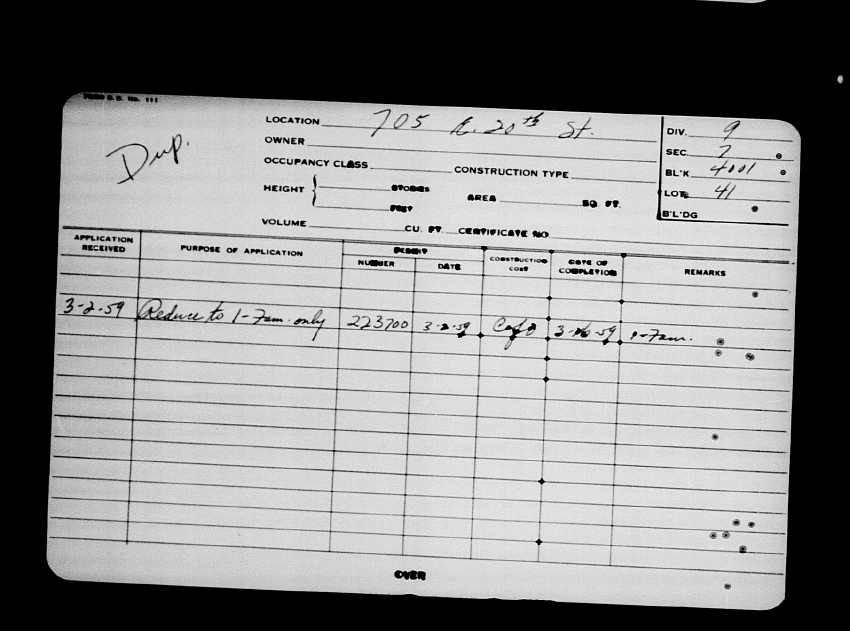 FORM B.D. No. 111
Dup.
LOCATION 705 E. 20th St.
OWNER
OCCUPANCY CLASS CONSTRUCTION TYPE
HEIGHT { STORIES
FEET
AREA SQ. FT.
VOLUME CU. FT. CERTIFICATE NO.
DIV. 9
SEC. 7
BL'K 4001
LOT 41
B'L'DG
APPLICATION RECEIVED PURPOSE OF APPLICATION PERMIT NUMBER DATE CONSTRUCTION COST DATE OF COMPLETION REMARKS
3-2-59 Reduce to 1-7am. only 223700 3-2-59 3-16-59 1-7am.
OVER